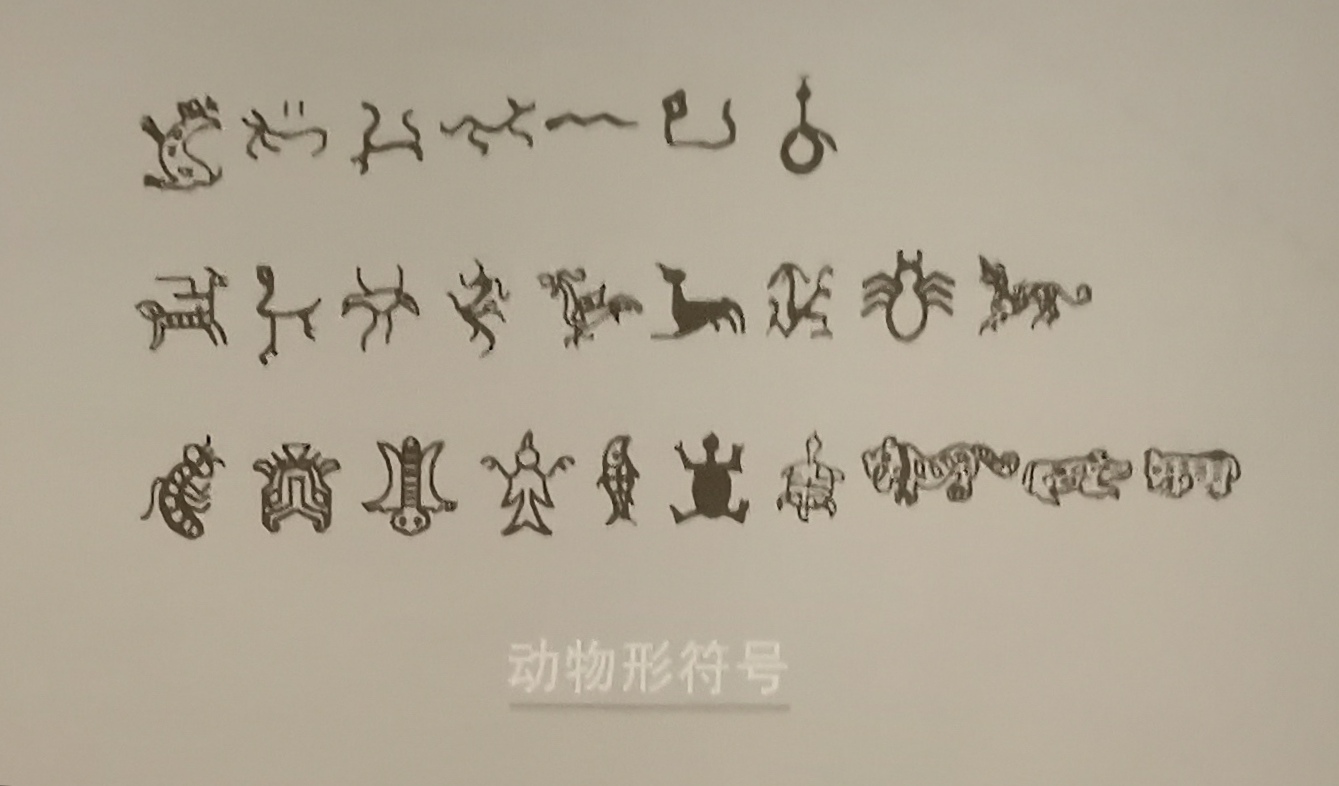 动物形符号